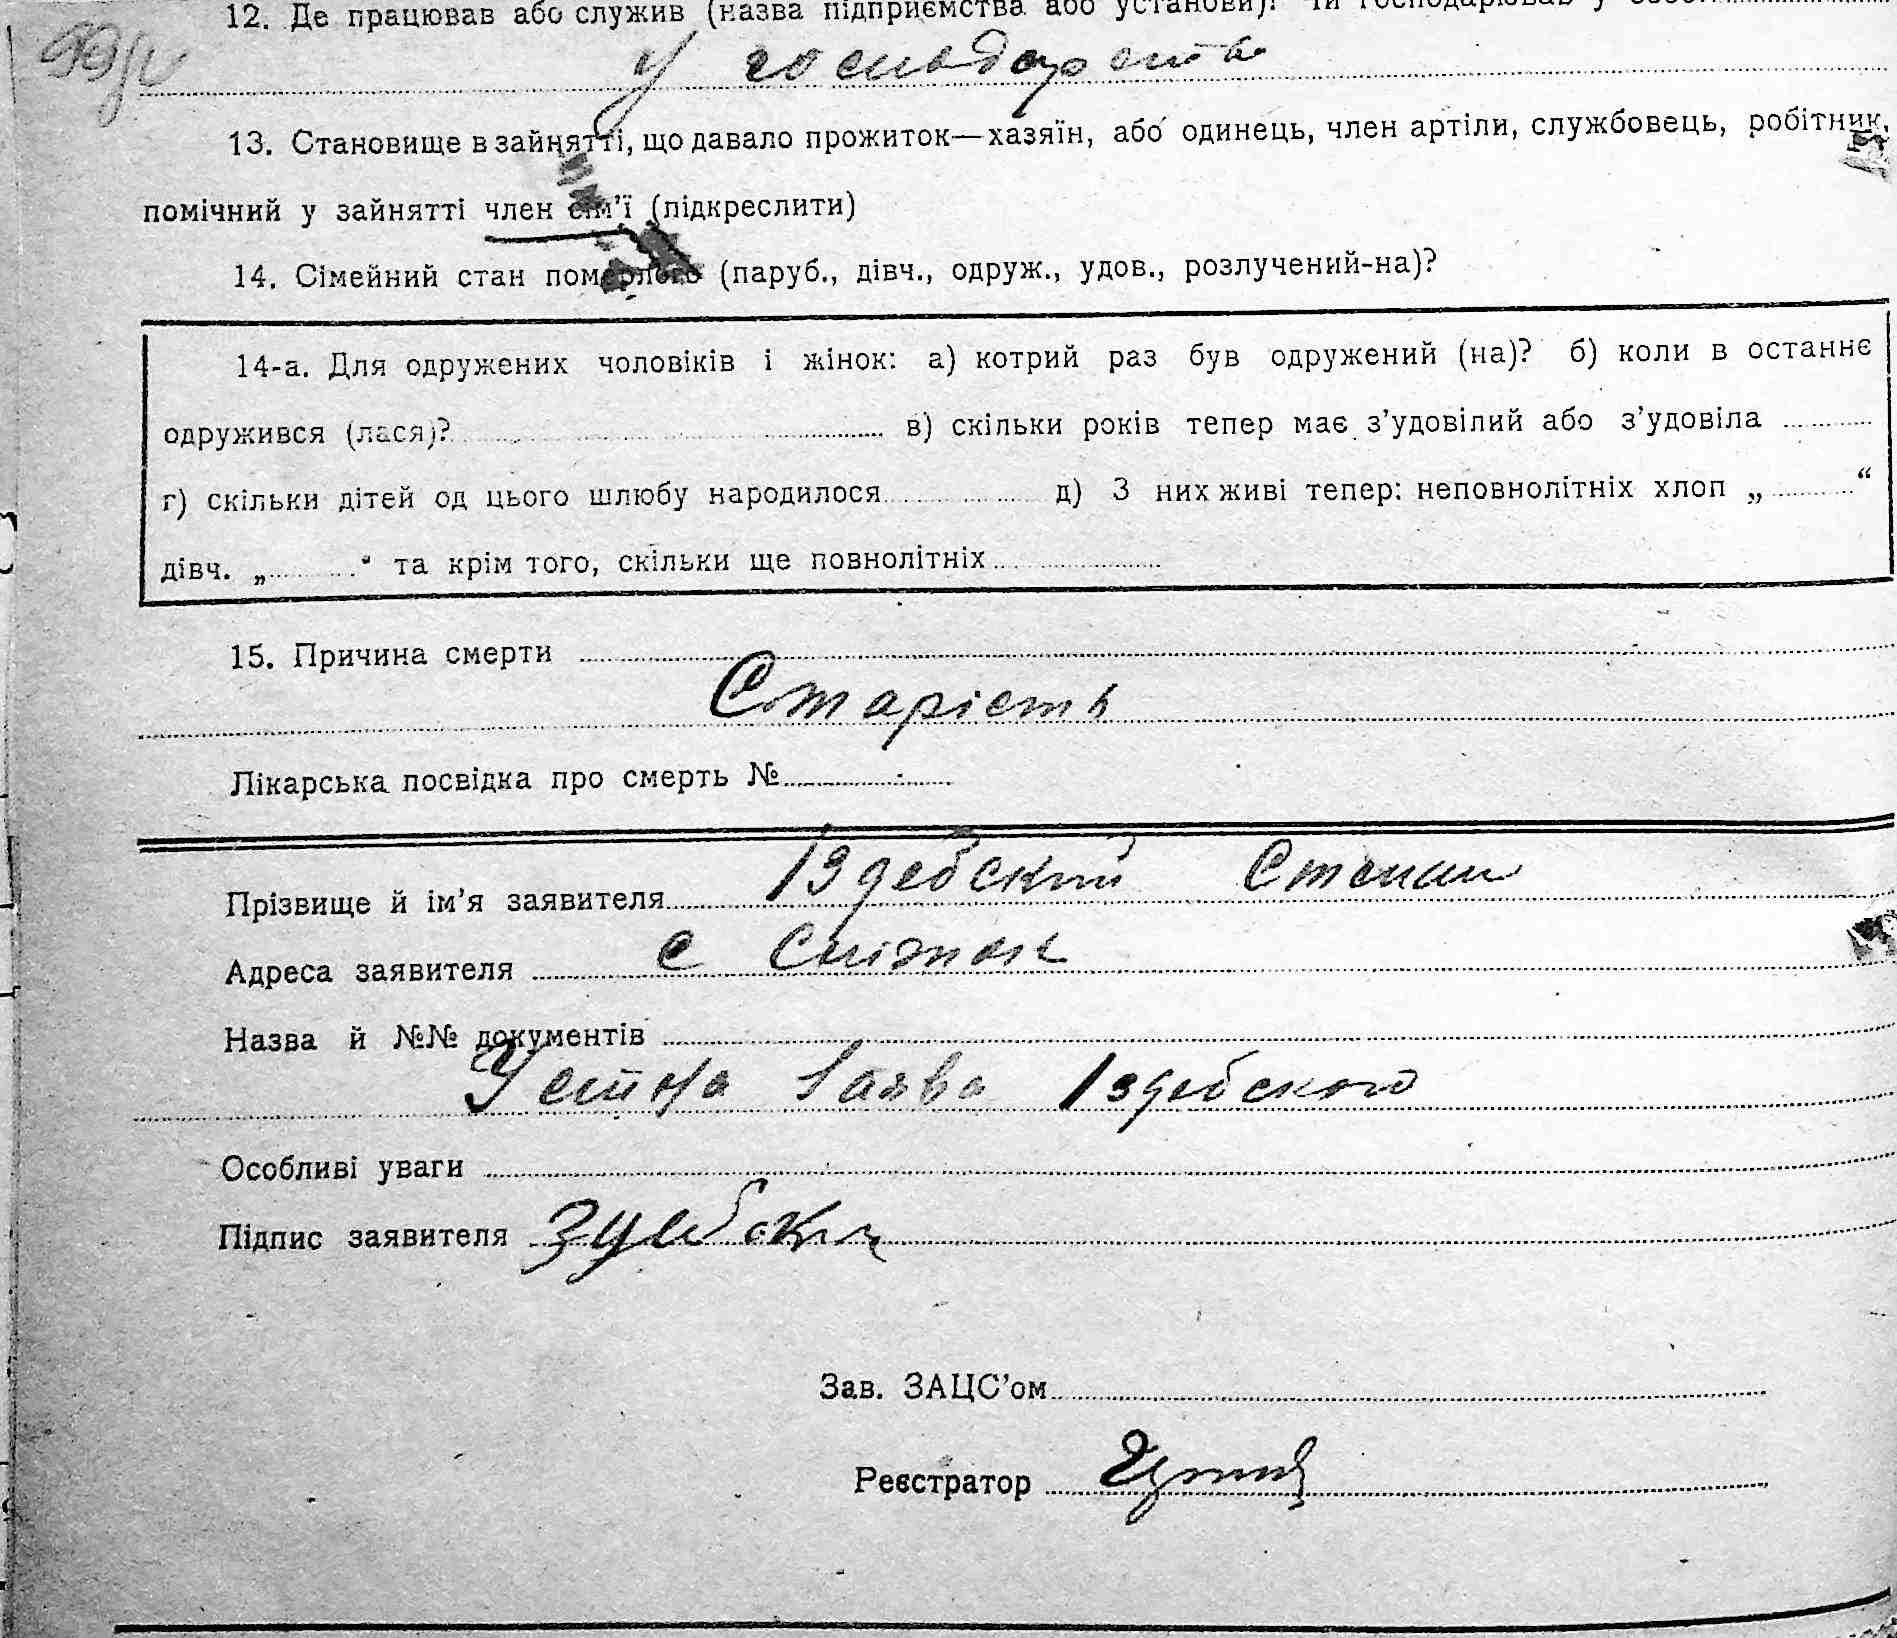 12. Де працював або служив (назва підприємства або установи)? Чи господарював у
у господарстві
13. Становище в зайнятті, що давало прожиток—хазяїн, або одинець, член артіли, службовець, робітник,
помічний у зайнятті член сім’ї (підкреслити)
14. Сімейний стан померлого (паруб., дівч., одруж., удов., розлучений-на)?
14-а. Для одружених чоловіків і жінок: а) котрий раз був одружений (на)? б) коли в останнє
одружився (лася)? в) скільки років тепер має з’удовілий або з’удовіла
г) скільки дітей од цього шлюбу народилося д) З них живі тепер: неповнолітніх хлоп „ “
дівч. „ “ та крім того, скільки ще повнолітніх
15. Причина смерти
Старість
Лікарська посвідка про смерть №
Прізвище й ім’я заявителя Іздебский Степан
Адреса заявителя с
Назва й №№ документів
Устна заява Іздебского
Особливі уваги
Підпис заявителя
Зав. ЗАЦС’ом
Реєстратор